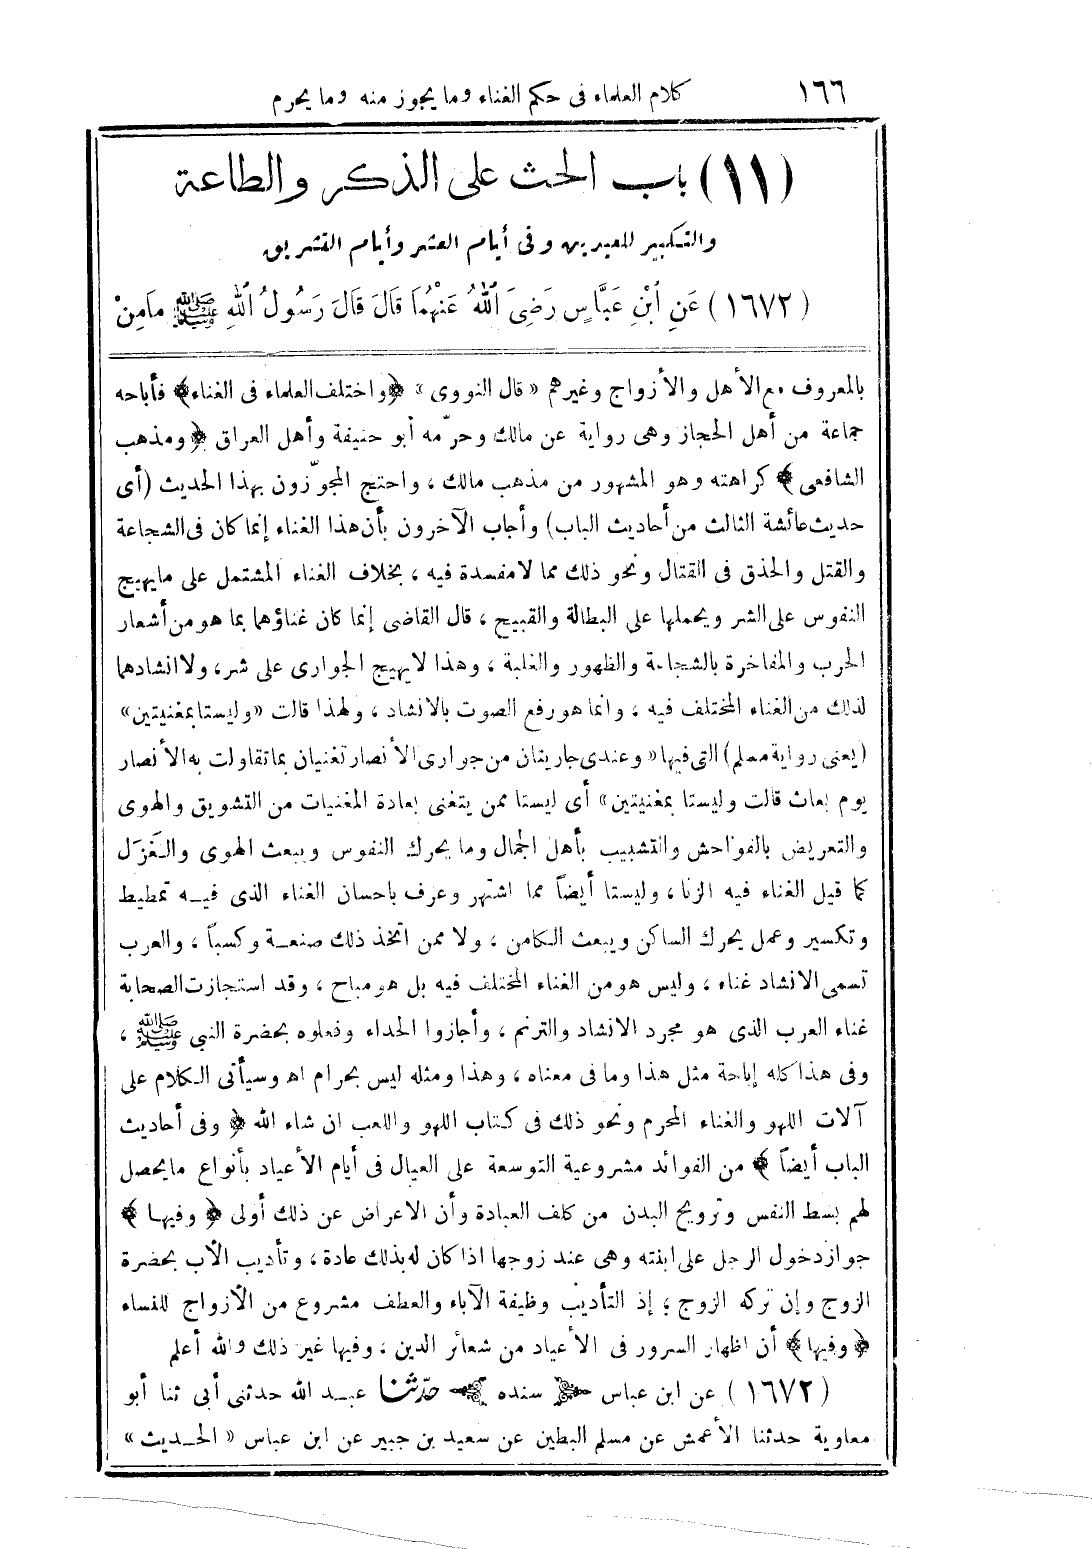 ١٦٦ كلام العلماء فى حكم الغناء وما يجوز منه وما يحرم
(١١) باب الحث على الذكر والطاعة
والتكبير للعيدين وفى أيام العشر وأيام التشريق
(١٦٧٢) عَنِ ابْنِ عَبَّاسٍ رَضِىَ اللهُ عَنْهُمَا قَالَ قَالَ رَسُولُ اللهِ ﷺ مَامِنْ
بالمعروف مع الأهل والأزواج وغيرهم «قال النووى» ﴿واختلف العلماء فى الغناء﴾ فأباحه
جماعة من أهل الحجاز وهى رواية عن مالك وحرّمه أبو حنيفة وأهل العراق ﴿ومذهب
الشافعى﴾ كراهته وهو المشهور من مذهب مالك ، واحتج المجوّزون بهذا الحديث (أى
حديث عائشة الثالث من أحاديث الباب) وأجاب الآخرون بأن هذا الغناء إنما كان فى الشجاعة
والقتل والحذق فى القتال ونحو ذلك مما لامفسدة فيه ، بخلاف الغناء المشتمل على مايهيج
النفوس على الشر ويحملها على البطالة والقبيح ، قال القاضى إنما كان غناؤهما بما هو من أشعار
الحرب والمفاخرة بالشجاعة والظهور والغلبة ، وهذا لايهيج الجوارى على شر، ولا انشادهما
لذلك من الغناء المختلف فيه ، وانما هو رفع الصوت بالانشاد ، ولهذا قالت «وليستا بمغنيتين»
(يعنى رواية مسلم) التى فيها «وعندى جاريتان من جوارى الأنصار تغنيان بما تقاولت به الأنصار
يوم بعاث قالت وليستا بمغنيتين» أى ليستا ممن يتغنى بعادة المغنيات من التشويق والهوى
والتعريض بالفواحش والتشبيب بأهل الجمال وما يحرك النفوس ويبعث الهوى والغَزَل
كما قيل الغناء فيه الزنا ، وليستا أيضاً مما اشتهر وعرف باحسان الغناء الذى فيه تمطيط
وتكسير وعمل يحرك الساكن ويبعث الكامن ، ولا ممن اتخذ ذلك صنعة وكسباً ، والعرب
تسمى الانشاد غناء ، وليس هو من الغناء المختلف فيه بل هو مباح ، وقد استجازت الصحابة
غناء العرب الذى هو مجرد الانشاد والترنم ، وأجازوا الحداء وفعلوه بحضرة النبي ﷺ ،
وفى هذا كله إباحة مثل هذا وما فى معناه ، وهذا ومثله ليس بحرام اه وسيأتى الكلام على
آلات اللهو والغناء المحرم ونحو ذلك فى كتاب اللهو واللعب ان شاء الله ﴿وفى أحاديث
الباب أيضاً﴾ من الفوائد مشروعية التوسعة على العيال فى أيام الأعياد بأنواع مايحصل
لهم بسط النفس وترويح البدن من كلف العبادة وأن الاعراض عن ذلك أولى ﴿وفيها﴾
جواز دخول الرجل على ابنته وهى عند زوجها اذا كان له بذلك عادة ، وتأديب الأب بحضرة
الزوج وإن تركه الزوج ؛ إذ التأديب وظيفة الآباء والعطف مشروع من الأزواج للنساء
﴿وفيها﴾ أن اظهار السرور فى الأعياد من شعائر الدين ، وفيها غير ذلك والله أعلم
(١٦٧٢) عن ابن عباس سنده حدّثنا عبد الله حدثنى أبى ثنا أبو
معاوية حدثنا الأعمش عن مسلم البطين عن سعيد بن جبير عن ابن عباس «الحديث»